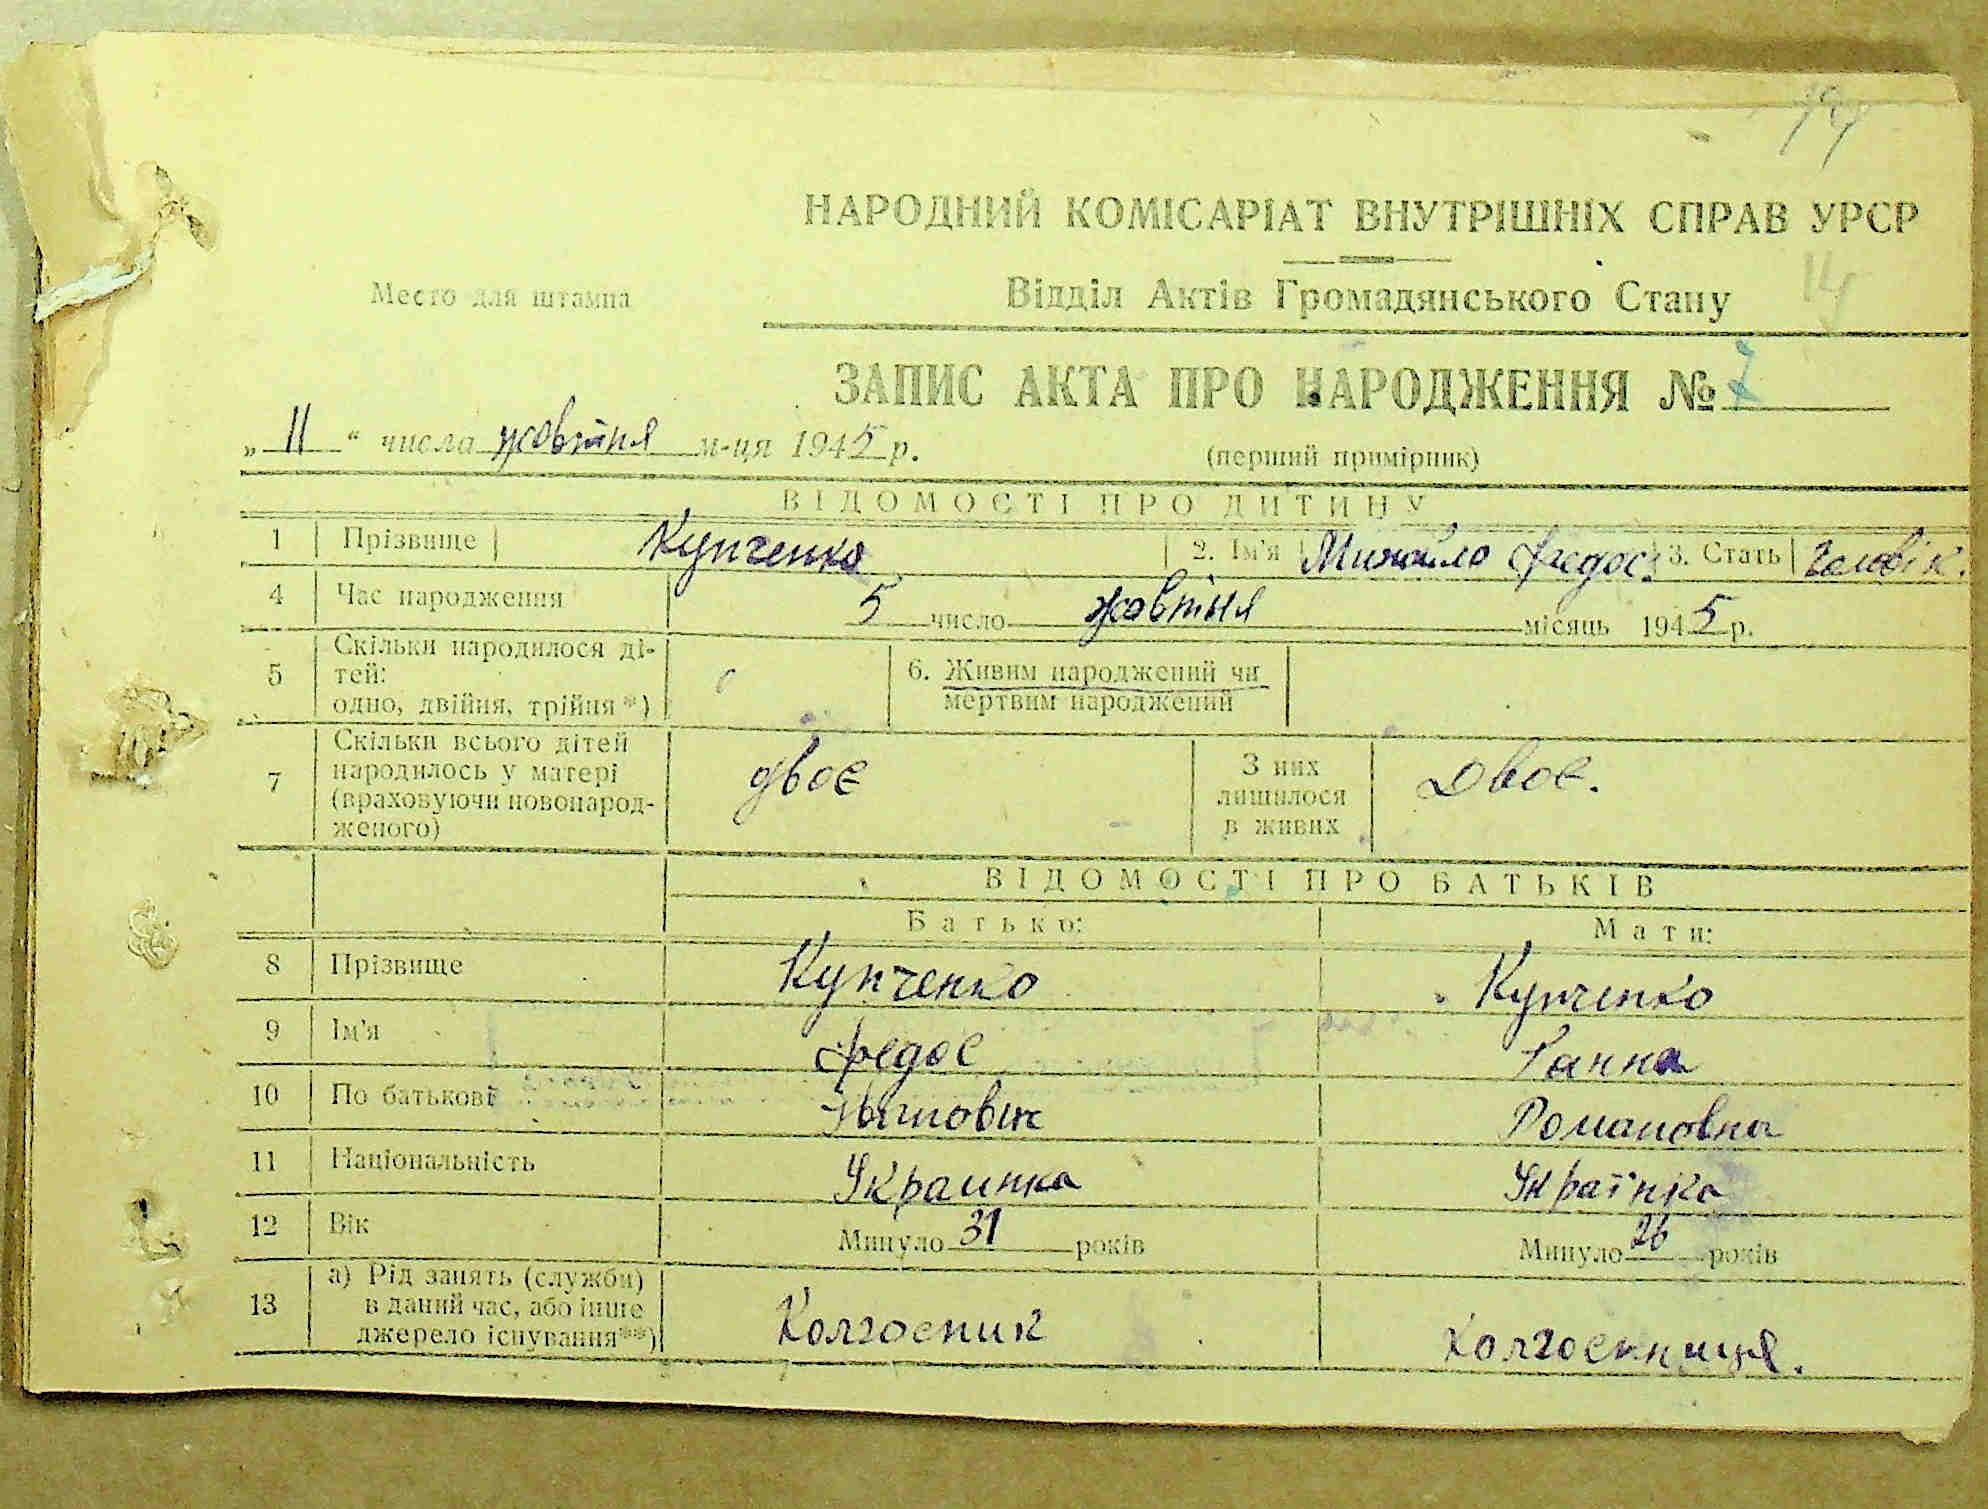 НАРОДНИЙ КОМІСАРІАТ ВНУТРІШНІХ СПРАВ УРСР
14
Место для штампа
Відділ Актів Громадянського Стану
ЗАПИС АКТА ПРО НАРОДЖЕННЯ № 7
„ 11 “ числа жовтня м-ця 1945 р.
(перший примірник)
ВІДОМОСТІ ПРО ДИТИНУ
1 Прізвище Купченко 2. Ім'я Михайло Федос. 3. Стать Чоловік.
4 Час народження 5 число жовтня місяць 1945 р.
5 Скільки народилося ді-
тей:
одно, двійня, трійня*)
6. Живим народжений чи
мертвим народжений
7 Скільки всього дітей
народилось у матері
(враховуючи новонарод-
женого)
двоє
З них
лишилося
в живих
Двоє.
ВІДОМОСТІ ПРО БАТЬКІВ
Батько: Мати:
8 Прізвище Купченко Купченко
9 Ім'я Федос Ганна
10 По батькові Романовна
11 Національність Украинка Українка
12 Вік Минуло 31 років Минуло 26 років
13 а) Рід занять (служби)
в даний час, або інше
джерело існування**)
Колгоспник Колгоспниця.